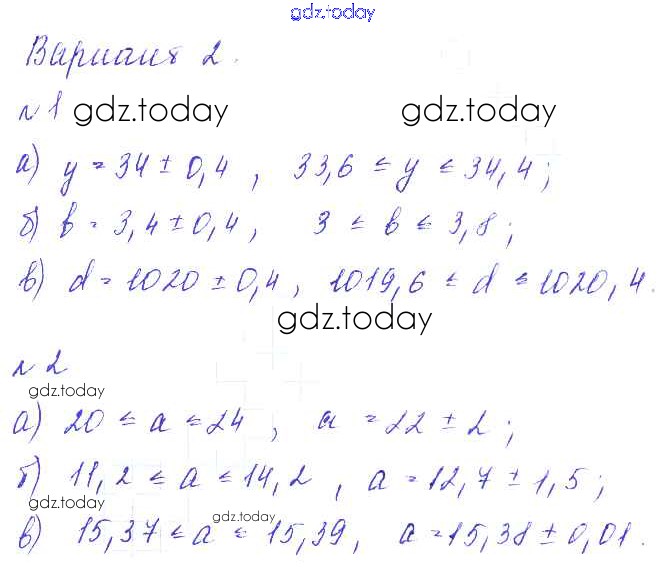 gdz.today
Вариант 2.
№ 1
gdz.today gdz.today
а) y = 34 ± 0,4 , 33,6 ≤ y ≤ 34,4;
б) b = 3,4 ± 0,4, 3 ≤ b ≤ 3,8;
в) d = 1020 ± 0,4, 1019,6 ≤ d ≤ 1020,4.
gdz.today
№ 2
gdz.today
а) 20 ≤ a ≤ 24 , a = 22 ± 2;
б) 11,2 ≤ a ≤ 14,2 , a = 12,7 ± 1,5;
gdz.today gdz.today
в) 15,37 ≤ a ≤ 15,39, a = 15,38 ± 0,01.